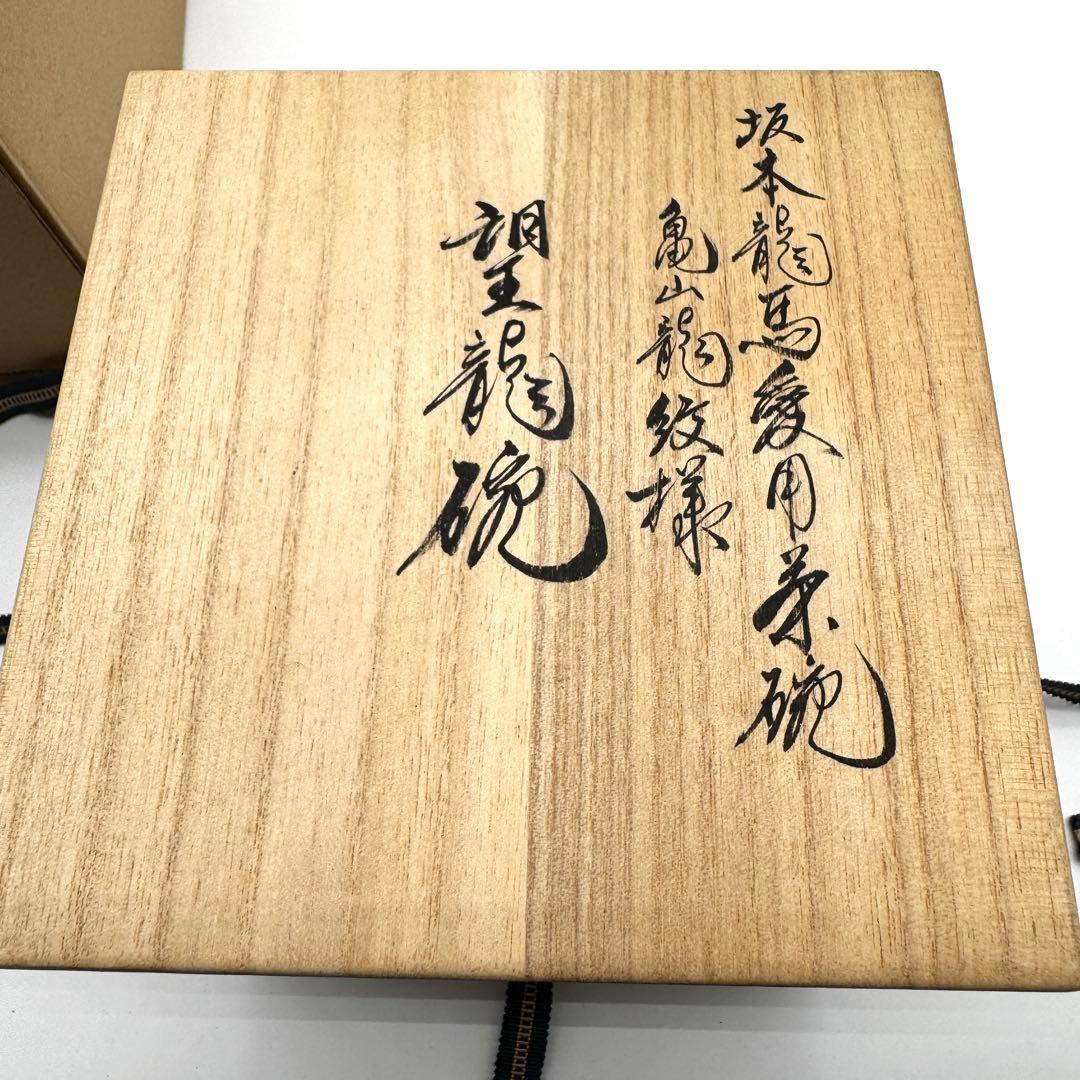 坂本龍馬愛用茶碗
亀山龍紋様
望龍碗